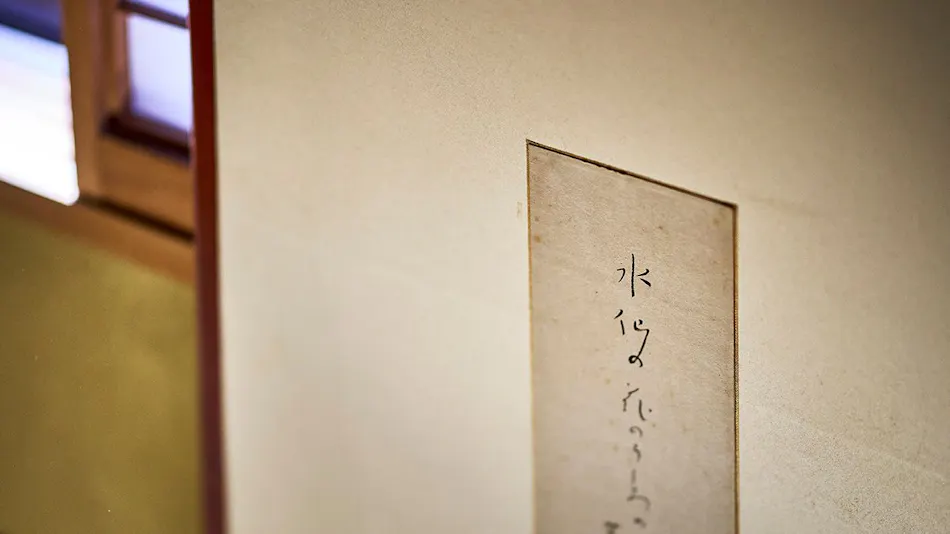 水仙の花のうしろの